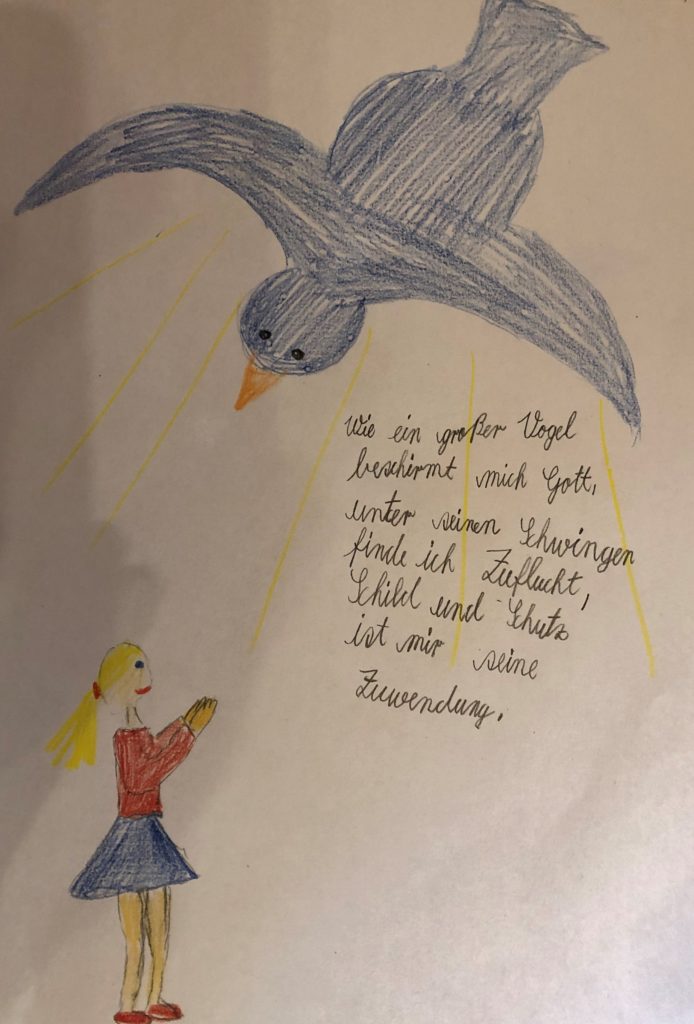 Wie ein großer Vogel
beschirmt mich Gott,
unter seinen Schwingen
finde ich Zuflucht,
Schild und Schutz
ist mir seine
Zuwendung.